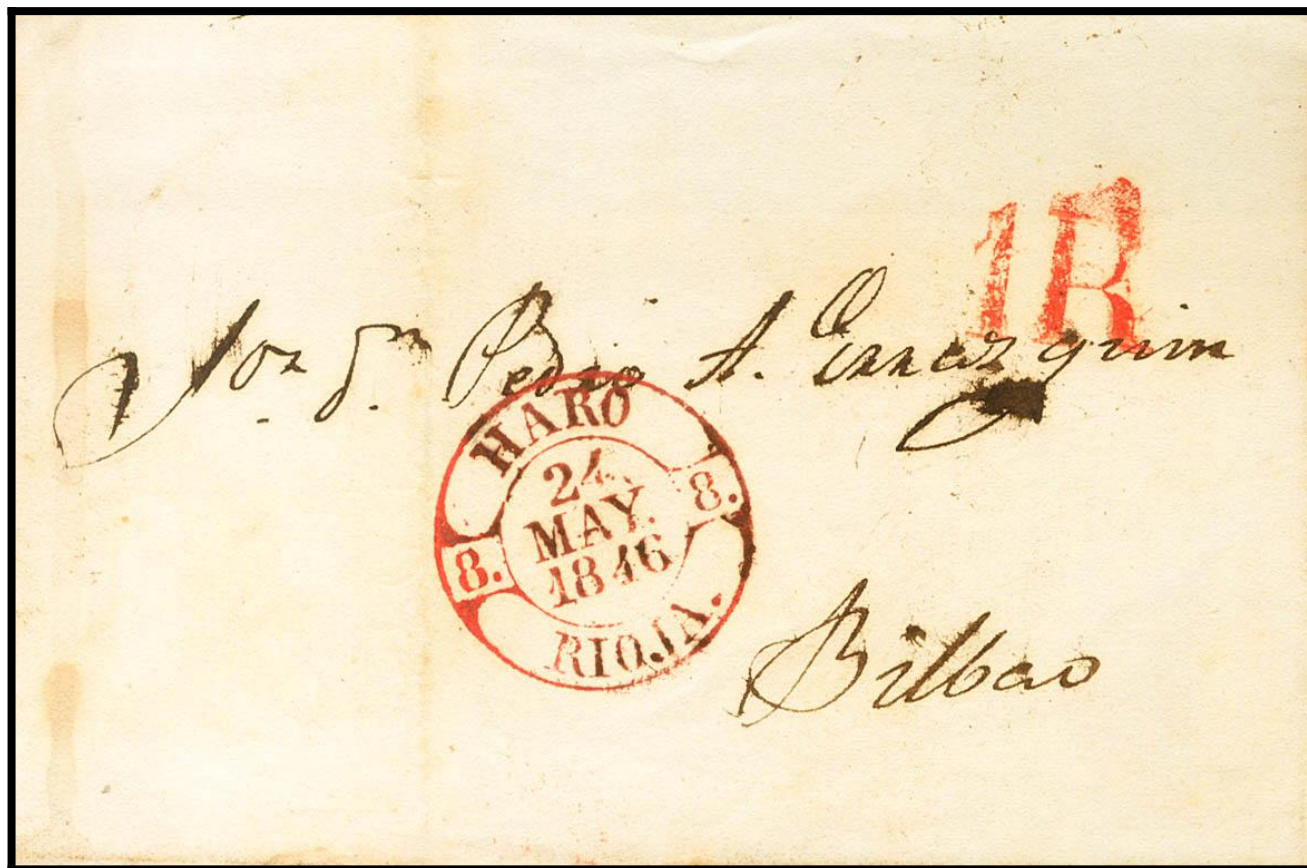 1R
Sor Dn Pedro A. Errazquin
HARO
8. 24 8.
MAY.
1846
RIOJA.
Bilbao